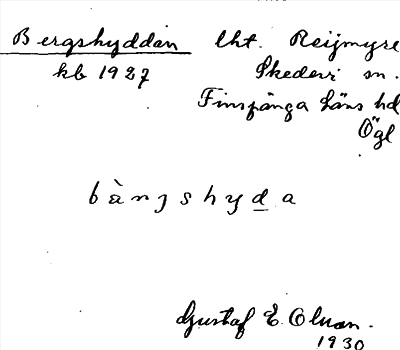 Bergshyddan lht. Reijmyre
kb 1927 Skedevi sn.
Finspånga läns hd
Ögl
bàŋshyda
Gustaf E. Olsson.
1930